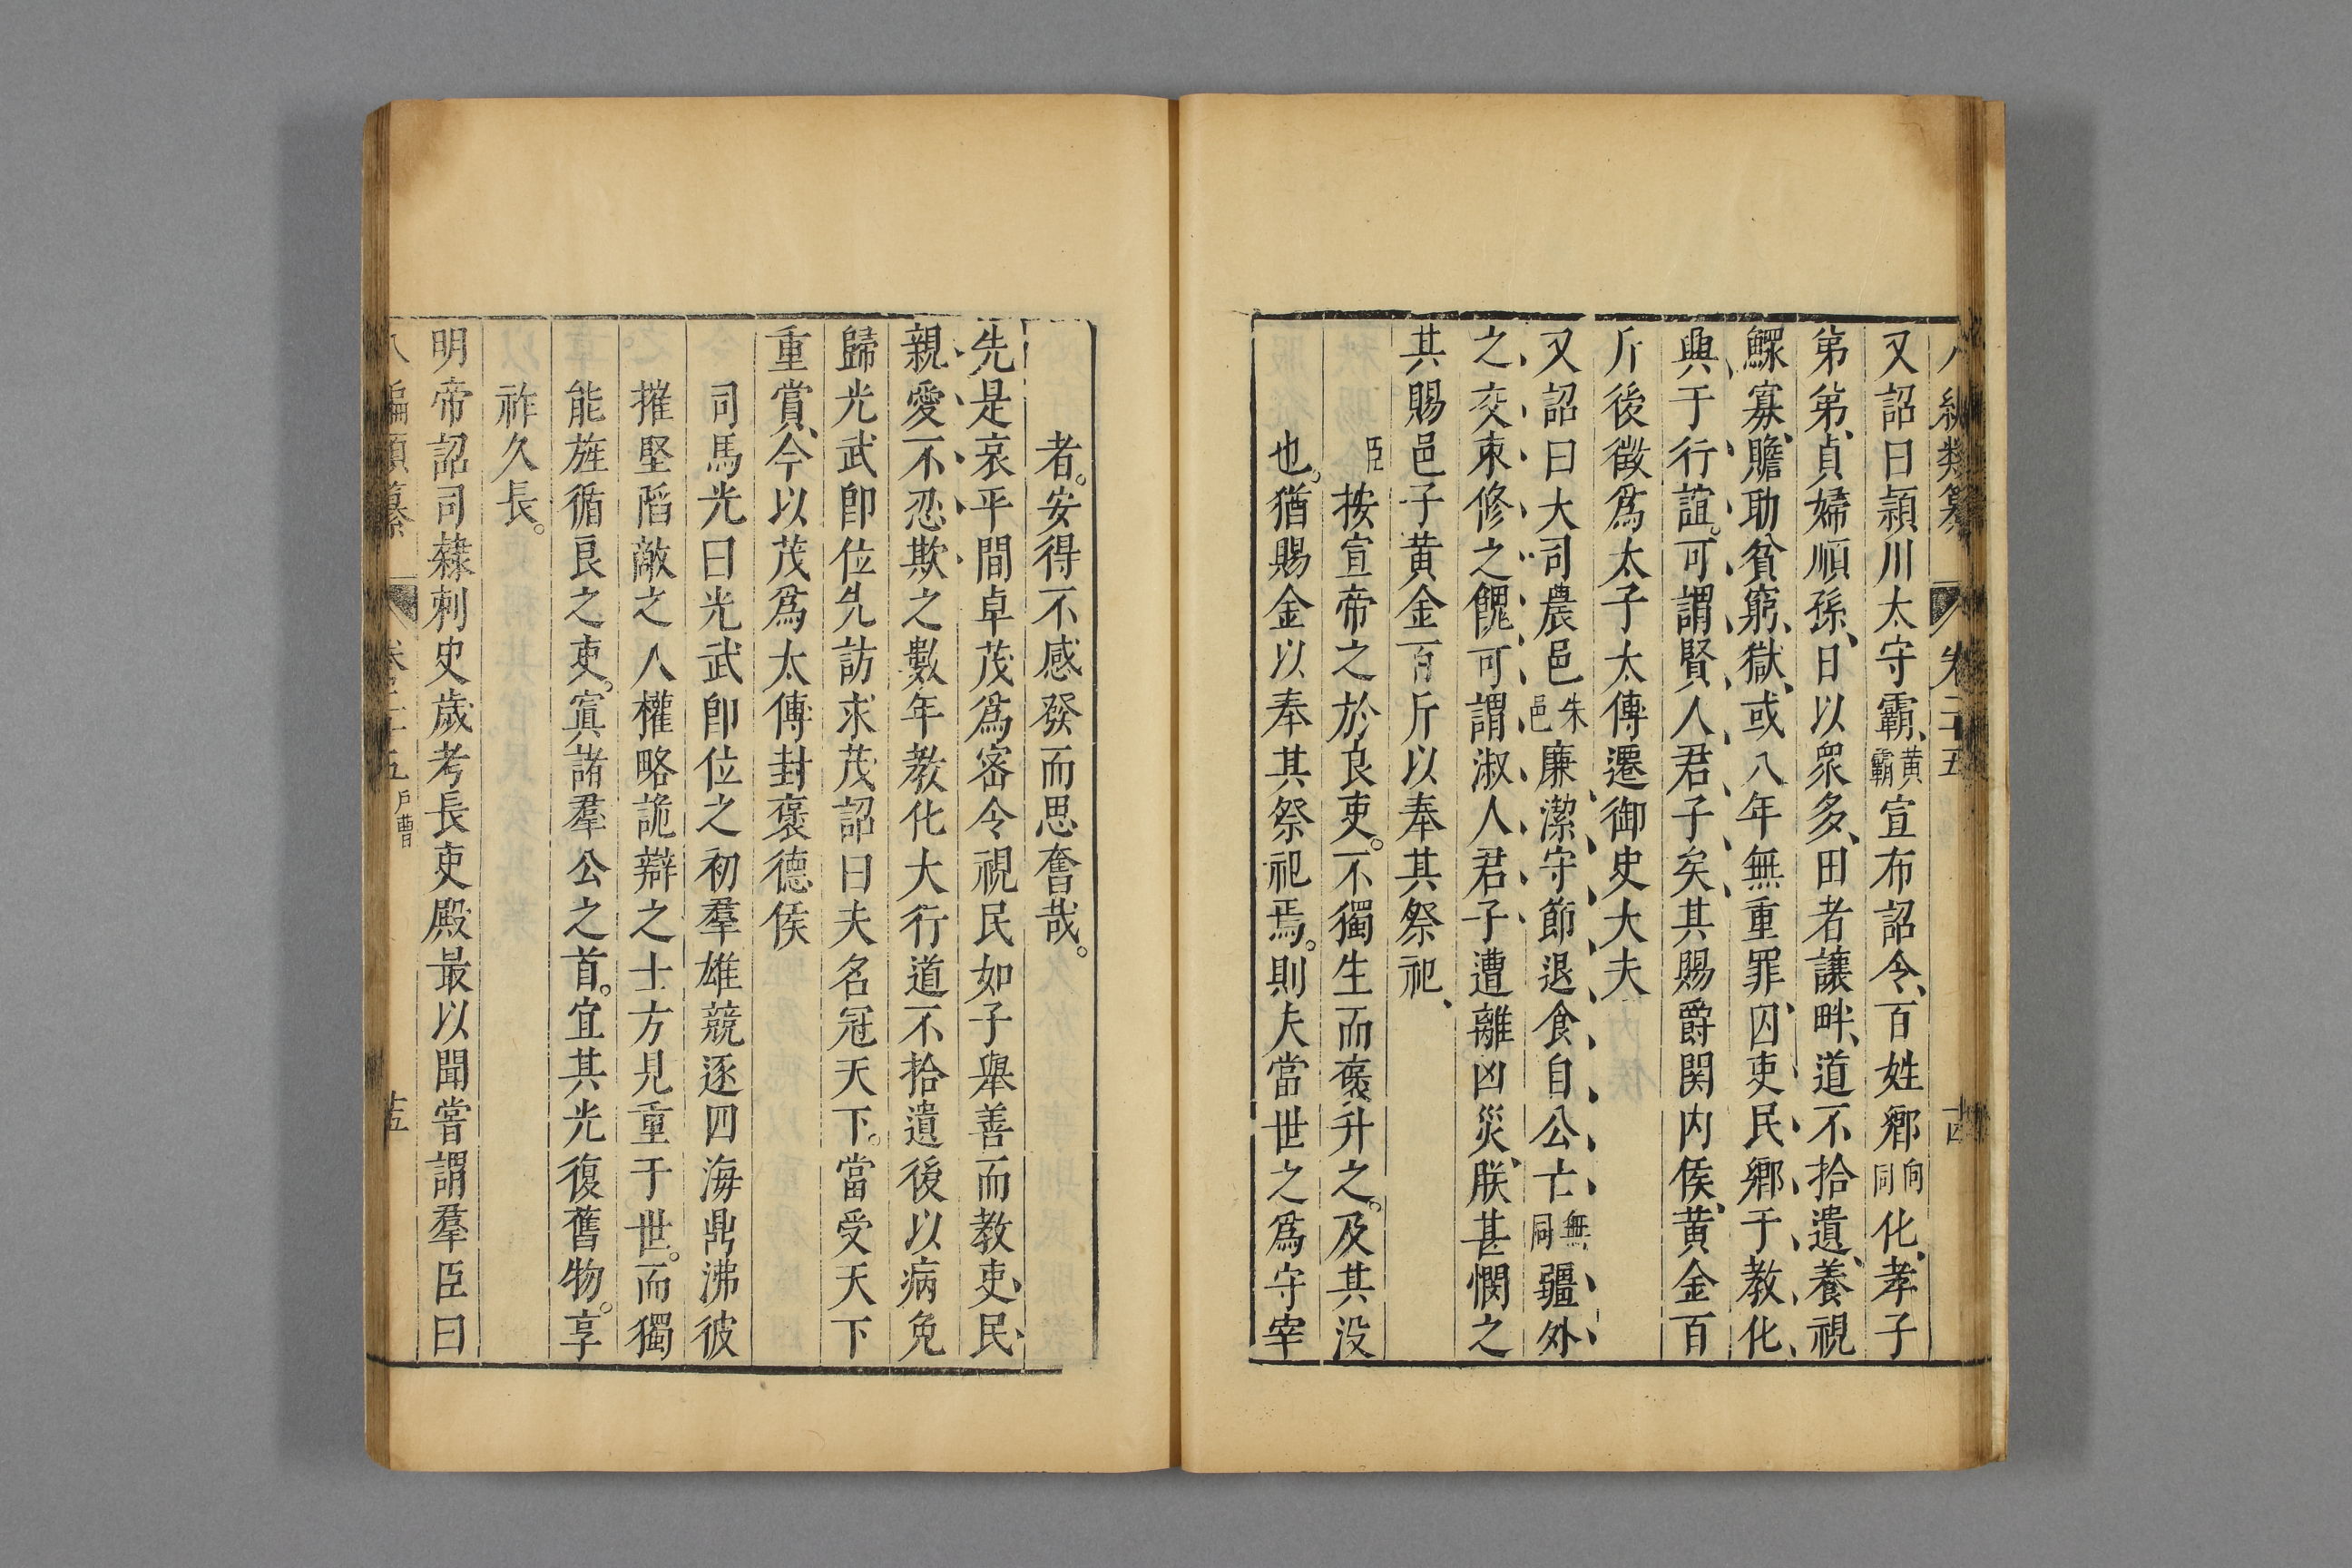 八編類纂 卷二十五 十四
又詔曰頴川太守霸黄霸宣布詔令、百姓鄉向同化、孝子
弟弟、貞婦順孫、日以衆多、田者讓畔、道不拾遺、養視
鰥寡、贍助貧窮、獄或八年無重罪囚、吏民鄉于教化、
興于行誼。可謂賢人君子矣、其賜爵関内侯、黄金百
斤後徵爲太子太傅遷御史大夫
又詔曰大司農邑朱邑廉潔守節退食自公亡無同疆外
之交束修之餽可謂淑人君子遭離凶災、朕甚憫之
其賜邑子黄金百斤以奉其祭祀、
臣按宣帝之於良吏。不獨生而褒升之。及其没
也。猶賜金以奉其祭祀焉。則夫當世之爲守宰
者。安得不感發而思奮哉。
先是哀平間卓茂爲密令視民如子舉善而教吏、民、
親愛不忍欺之數年教化大行道不拾遺後以病免
歸光武卽位先訪求茂詔曰夫名冠天下。當受天下
重賞、今以茂爲太傅封褒德侯
司馬光曰光武卽位之初羣雄競逐四海鼎沸彼
摧堅陷敵之人權略詭辯之士方見重于世。而獨
能旌循良之吏。寘諸羣公之首。宜其光復舊物。享
祚久長。
明帝詔司隸刺史歲考長吏殿最以聞嘗謂羣臣曰
八編類纂 卷二十五 戶曹 十五